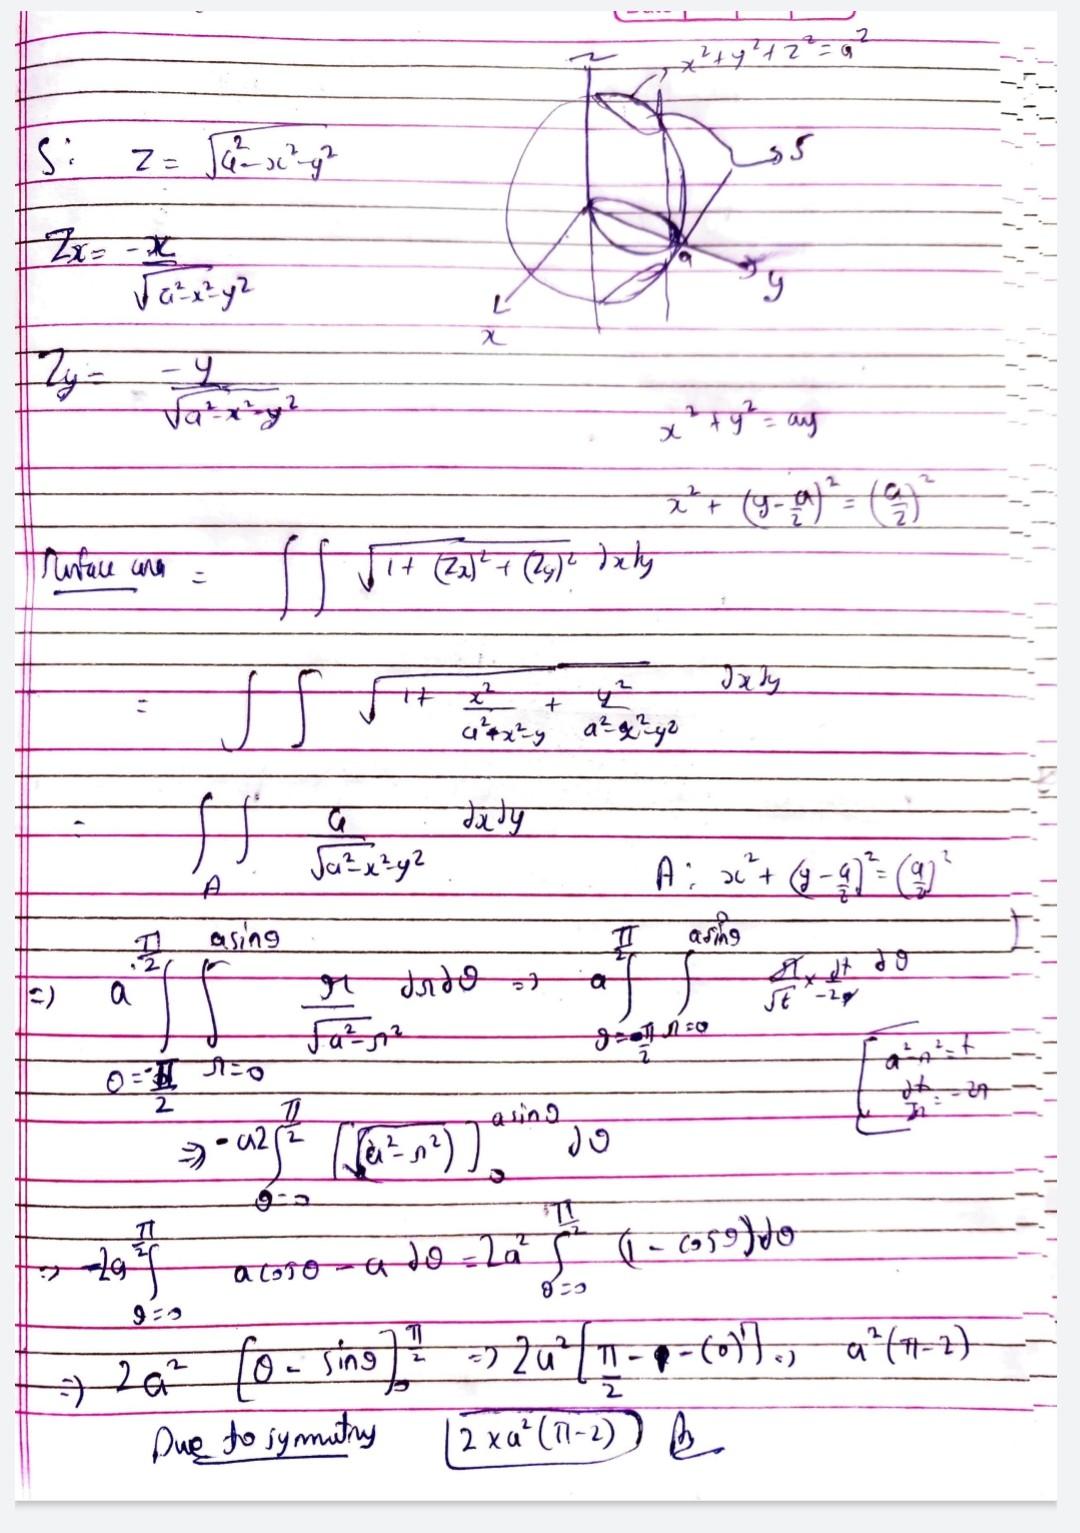 Z
x²+y²+z²=a²
S: Z = √a²-x²-y²
→S
Zx = -x/√a²-x²-y²
a
y
x
Zy = -y/√a²-x²-y²
x²+y²=ay
x²+(y-a/2)²=(a/2)²
Surface area = ∫∫ √1+(Zx)²+(Zy)² dxdy
= ∫∫ √1+ x²/a²-x²-y + y²/a²-x²-y² dxdy
= ∫∫_A a/√a²-x²-y² dxdy
A: x²+(y-a/2)²=(a/2)²
=) a ∫_{θ=-π/2}^{π/2} ∫_{r=0}^{asinθ} r/√a²-r² drdθ => a ∫_{θ=-π/2}^{π/2} ∫_{r=0}^{asinθ} r/√t × dt/-2r dθ
[a²-r²=t
dt/dr=-2r
=> -a2 ∫_{θ=0}^{π/2} [√(a²-r²)]_0^{asinθ} dθ
=> -2a ∫_{θ=0}^{π/2} acosθ - a dθ = 2a² ∫_{θ=0}^{π/2} (1-cosθ)dθ
=) 2a² [θ - sinθ]_0^{π/2} => 2a² [π/2 - 1 - (0)] => a²(π-2)
Due to symmetry 2×a²(π-2)